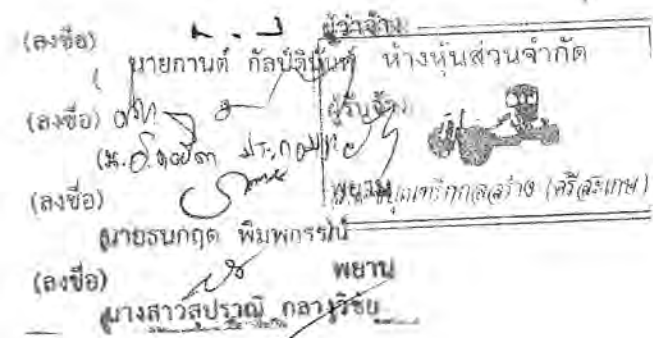 (ลงชื่อ) ผู้ว่าจ้าง
นายกานต์ กัลป์ตินันท์ ห้างหุ้นส่วนจำกัด
(ลงชื่อ) ผู้รับจ้าง
(ลงชื่อ) พยาน
(ศรีสะเกษ)
นายธนกฤต พิมพกรรณ์
(ลงชื่อ) พยาน
นางสาวสุปราณี กลางวิชัย